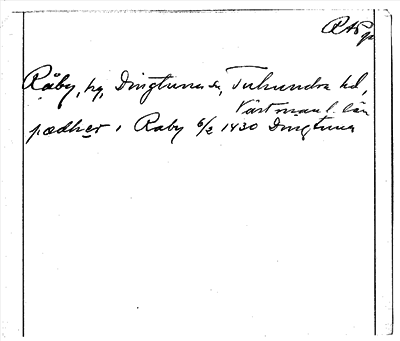 RAp
Råby, by, Dingtuna sn, Tuhundra hd,
Västmanl. län
pædher i Raby 6/2 1430 Dingtuna